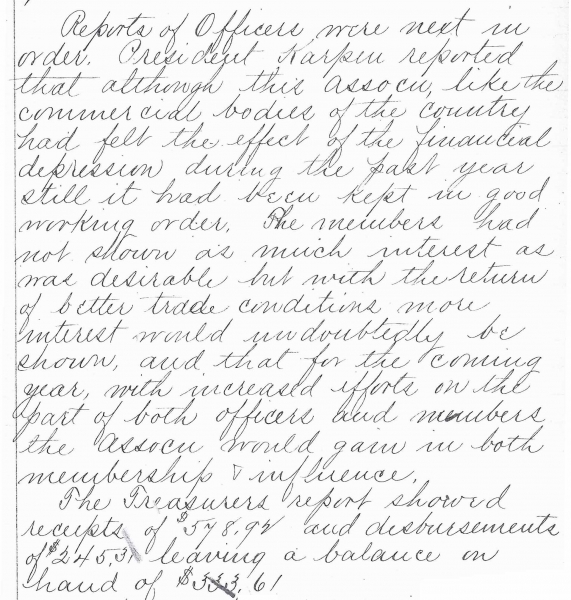 Reports of Officers were next in
order. President Karpen reported
that although this Assocn, like the
commercial bodies of the country
had felt the effect of the financial
depression during the past year
still it had been kept in good
working order. The members had
not shown as much interest as
was desirable but with the return
of better trade conditions more
interest would undoubtedly be
shown, and that for the coming
year, with increased efforts on the
part of both officers and members
the Assocn would gain in both
membership & influence.
The Treasurers report showed
receipts of $578.92 and disbursements
of $245.31 leaving a balance on
hand of $333.61